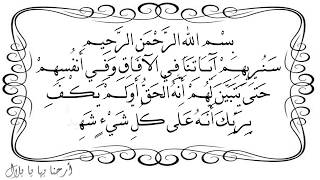 بِسْمِ اللهِ الرَّحْمَنِ الرَّحِيمِ
سَنُرِيهِمْ آيَاتِنَا فِي الآفَاقِ وَفِي أَنْفُسِهِمْ
حَتَّى يَتَبَيَّنَ لَهُمْ أَنَّهُ الْحَقُّ أَوَلَمْ يَكْفِ
بِرَبِّكَ أَنَّهُ عَلَى كُلِّ شَيْءٍ شَهِ
أرحنا بها يا بلال